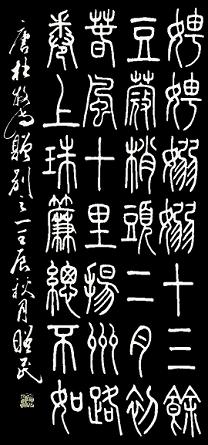 娉娉嫋嫋十三餘
豆蔻梢頭二月初
春風十里揚州路
卷上珠簾總不如
唐杜牧詩贈別之一壬辰秋月民